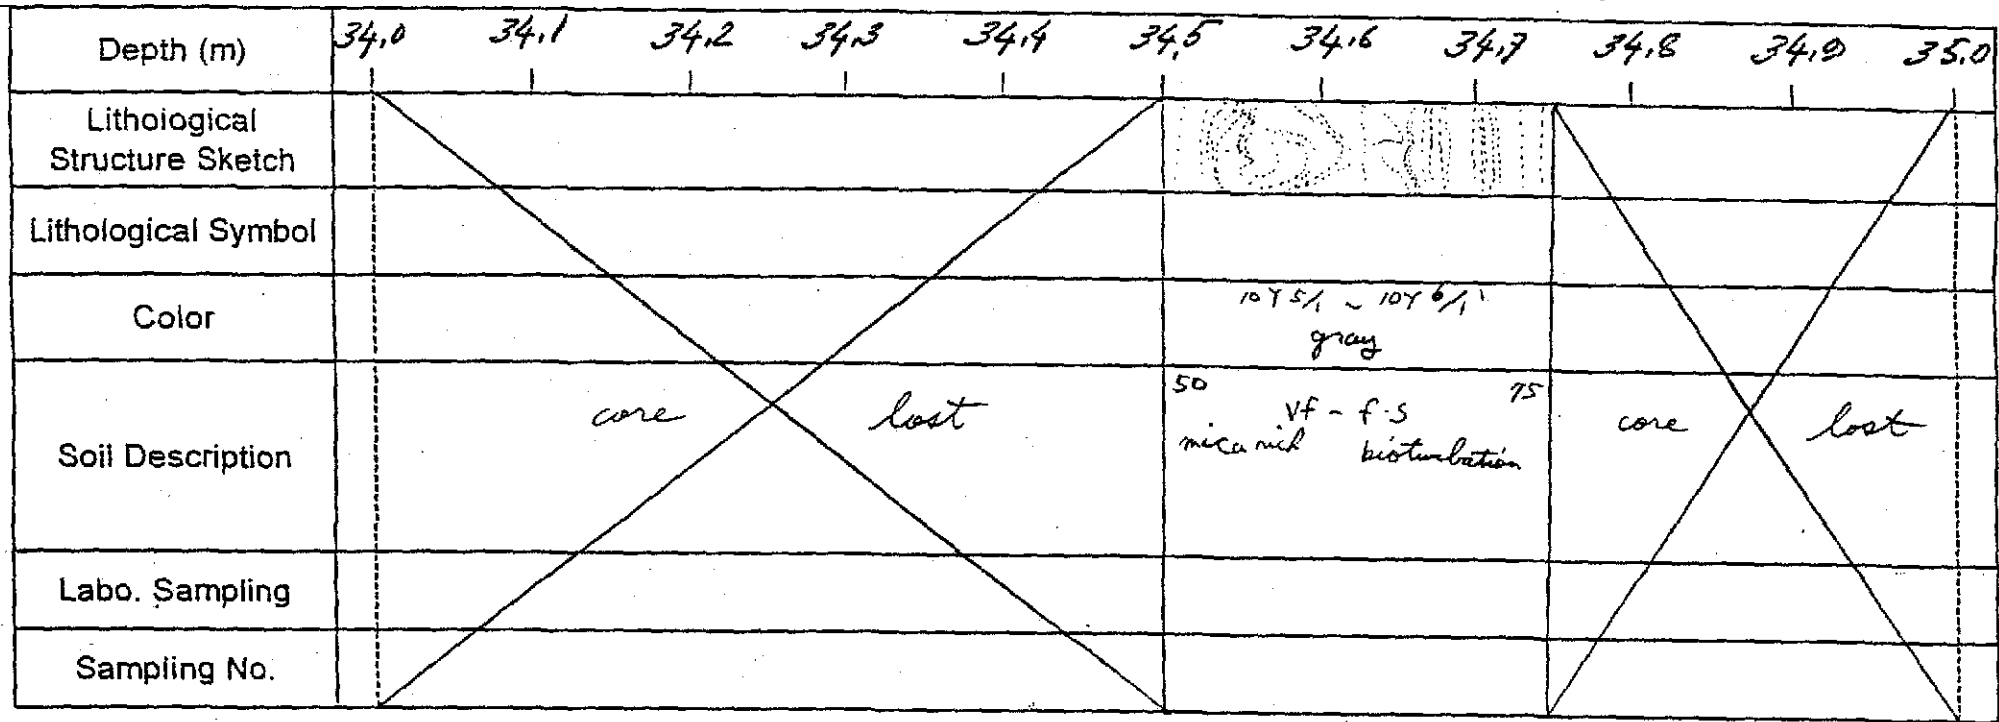 Depth (m) 34.0 34.1 34.2 34.3 34.4 34.5 34.6 34.7 34.8 34.9 35.0
Lithoiogical
Structure Sketch
Lithological Symbol
Color
10Y 5/1 ~ 10Y 6/1
gray
Soil Description
core lost
50 75
vf - f.s
mica rich bioturbation
core lost
Labo. Sampling
Sampling No.